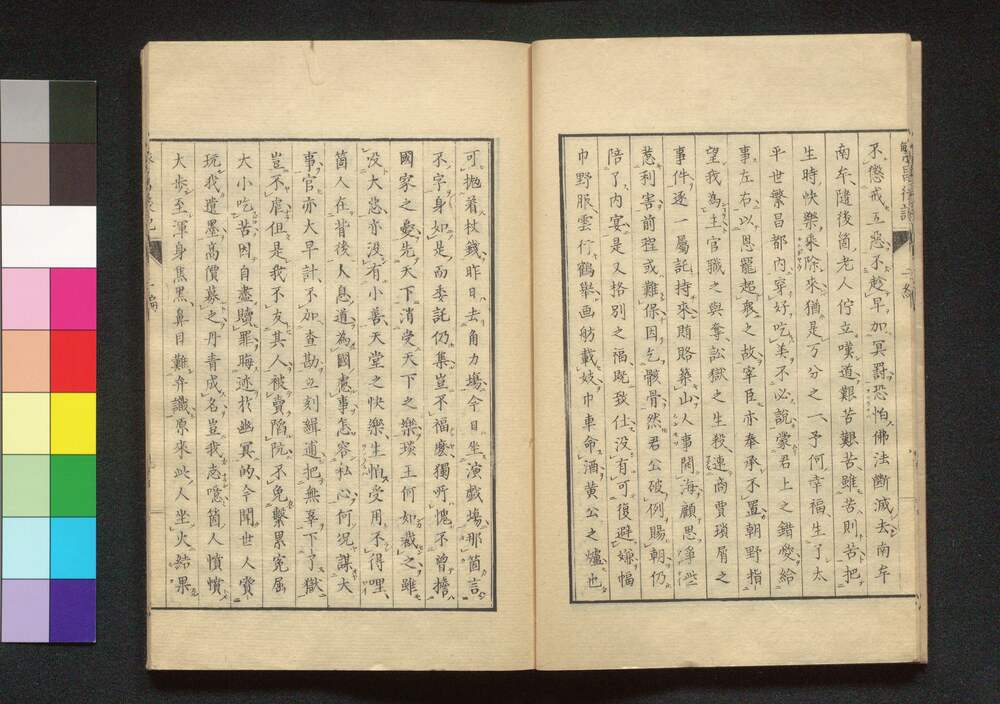 不懲戒互惡不趁早加冥罸恐怕佛法斷滅去南牟
南牟隨後箇老人佇立嘆道艱苦艱苦雖苦則苦把
生時快樂乘除來猶是万分之一予何幸福生了太
平世繁昌都內穿好吃美不必說蒙君上之錯愛給
事左右以恩罷超衆之故宰臣亦奉承不置朝野指
望我為主官職之與奪訟獄之生殺連商賈瑣屑之
事件逐一屬託持來賄賂築山人事閙海顧思凈些
惹利害前程或難保因乞骸骨然君公破例賜朝仍
陪了內宴是又格別之福既致仕没有可復避嫌幅
巾野服雲行鶴舉画舫載妓巾車命酒黄公之爐也
可抛着杖錢昨日去角力塲今日坐演戲塲那箇言
不字身如是而委託仍集豈不福麽獨所愧不曾擔
國家之憂先天下消受天下之樂琰王何如裁之雖
没大惡亦没有小善天堂之快樂生怕受用不得哩
箇人在背後人息道為國憲事怎容私心何況謀大
事官亦大早計不加查勘立刻緝逋把無辜下了獄
豈不虐但是我不友其人被賣陷阬不免繫累寃屈
大小吃苦因自盡贖罪晦迹於幽冥的今聞世人賞
玩我遺墨高價募之丹青成名豈我志噫箇人憤憤
大步至渾身焦黑鼻目難弁讖原來此人坐火結果